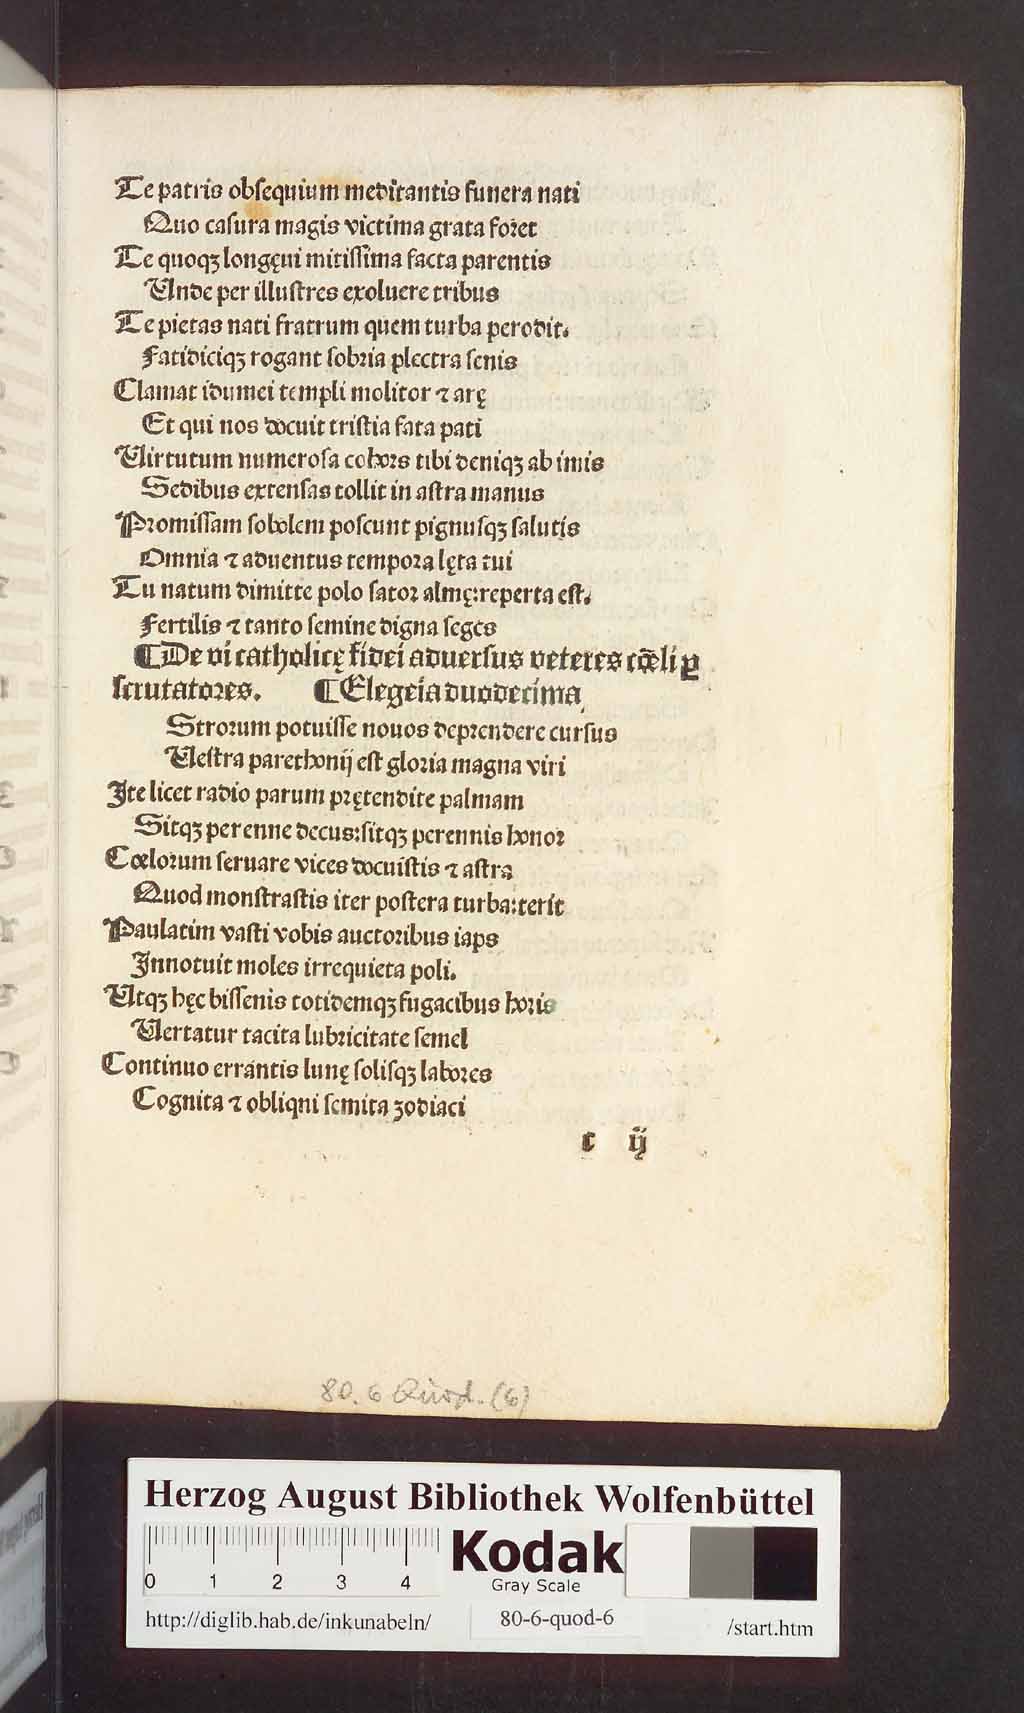 Te patris obsequium meditantis funera nati
Quo casura magis victima grata foret
Te quoqꝫ longęui mitissima facta parentis
Unde per illustres exoluere tribus
Te pietas nati fratrum quem turba perodit.
Fatidiciqꝫ rogant sobria plectra senis
Clamat idumei templi molitor ⁊ arę
Et qui nos docuit tristia fata pati
Uirtutum numerosa cohors tibi deniqꝫ ab imis
Sedibus extensas tollit in astra manus
Promissam sobolem poscunt pignusqꝫ salutis
Omnia ⁊ aduentus tempora lęta tui
Tu natum dimitte polo sator almę:reperta est.
Fertilis ⁊ tanto semine digna seges
¶De vi catholicę fidei aduersus veteres cœli ꝑ
scrutatores. ¶Elegeia duodecima
Strorum potuisse nouos deprendere cursus
Uestra parethonij est gloria magna viri
Ite licet radio parum prętendite palmam
Sitqꝫ perenne decus:sitqꝫ perennis honor
Cœlorum seruare vices docuistis ⁊ astra
Quod monstrastis iter postera turba:terit
Paulatim vasti vobis auctoribus iaps
Innotuit moles irrequieta poli.
Utqꝫ hęc bissenis totidemqꝫ fugacibus horis
Uertatur tacita lubricitate semel
Continuo errantis lunę solisqꝫ labores
Cognita ⁊ obliqni semita zodiaci
c ij
80. 6 Quod. (6)
Herzog August Bibliothek Wolfenbüttel
0 1 2 3 4
Kodak
Gray Scale
http://diglib.hab.de/inkunabeln/ 80-6-quod-6 /start.htm